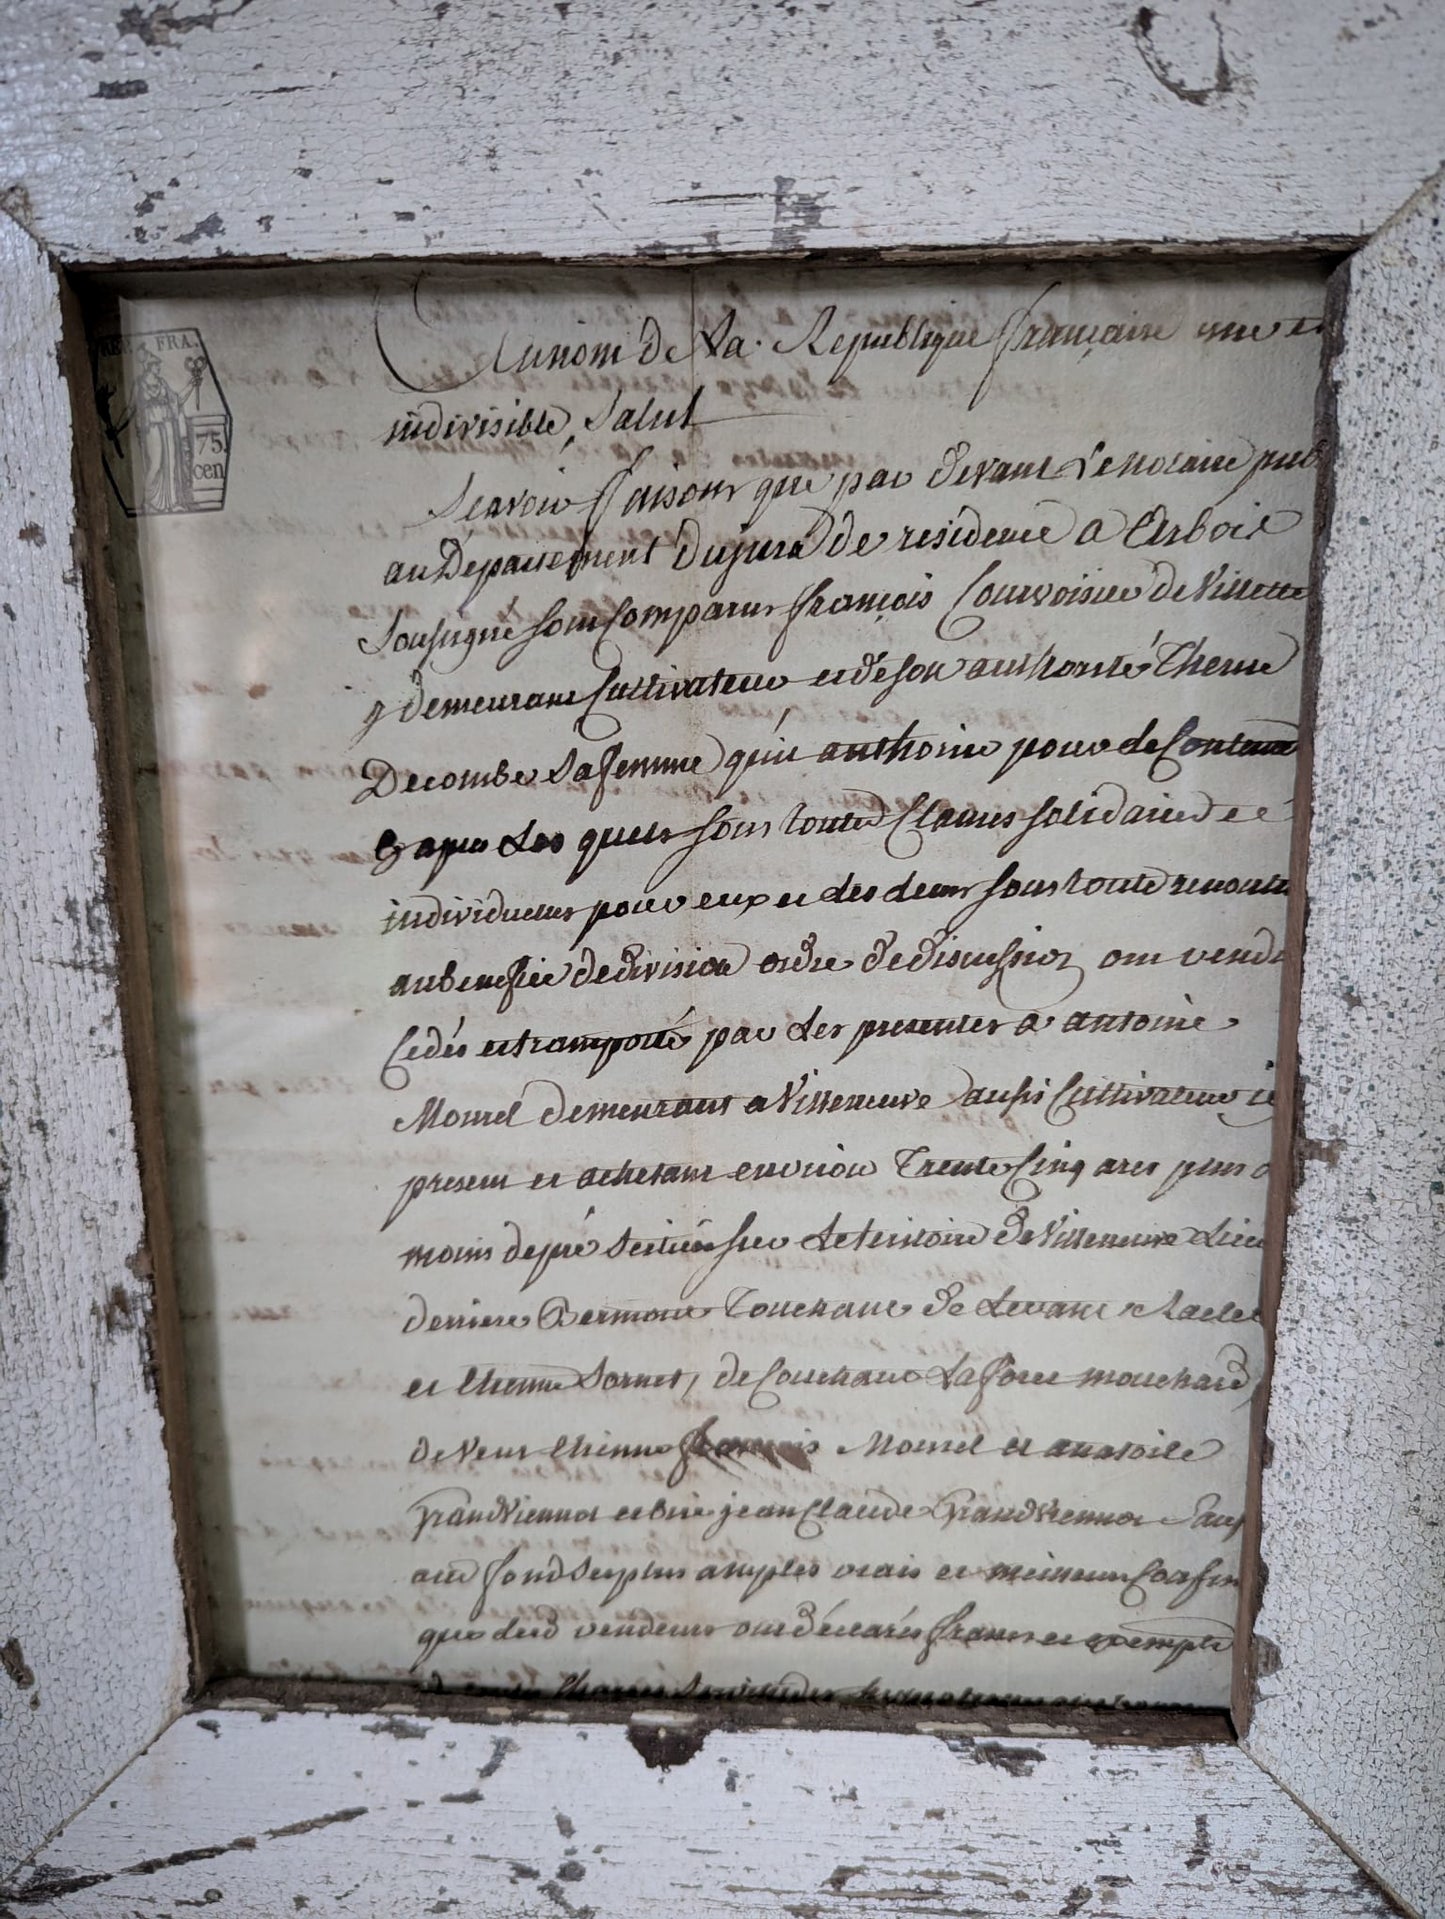 REP. FRA.
75
cen
Au nom de La Republique française une et
indivisible, Salut
Scavoir faisons que par devant Le notaire pub
au Departement du jura de residence a Arbois
Sousigné sont Comparus françois Courvoisier de Villette
y demeurant Cultivateur et de son authorité
Decombe sa femme qu'il authorise pour de
apres Les quels sous toutes Clauses solidaires et
individuelles pour eux et des leurs sous toute
au benefice de division ordre de discussion ont vendu
Cedés et transporté par Les presentes a antoine
Mourel demeurant a Villeneuve aussi Cultivateur
present et achetant environ Trente Cinq ares plus o
moins de pré scitué sur Le territoire de Villeneuve Lieu
derriere Bermont Touchant de Levant
et Etienne Sornet, de Couchant La mouchard
de Vent Etienne françois Mourel et anatoile
Grand Viennot et bise jean Claude Grand Viennot Sauf
au fond Surplus amples vrais et meilleurs Confins
que lesd vendeurs ont déclarés francs et exempts